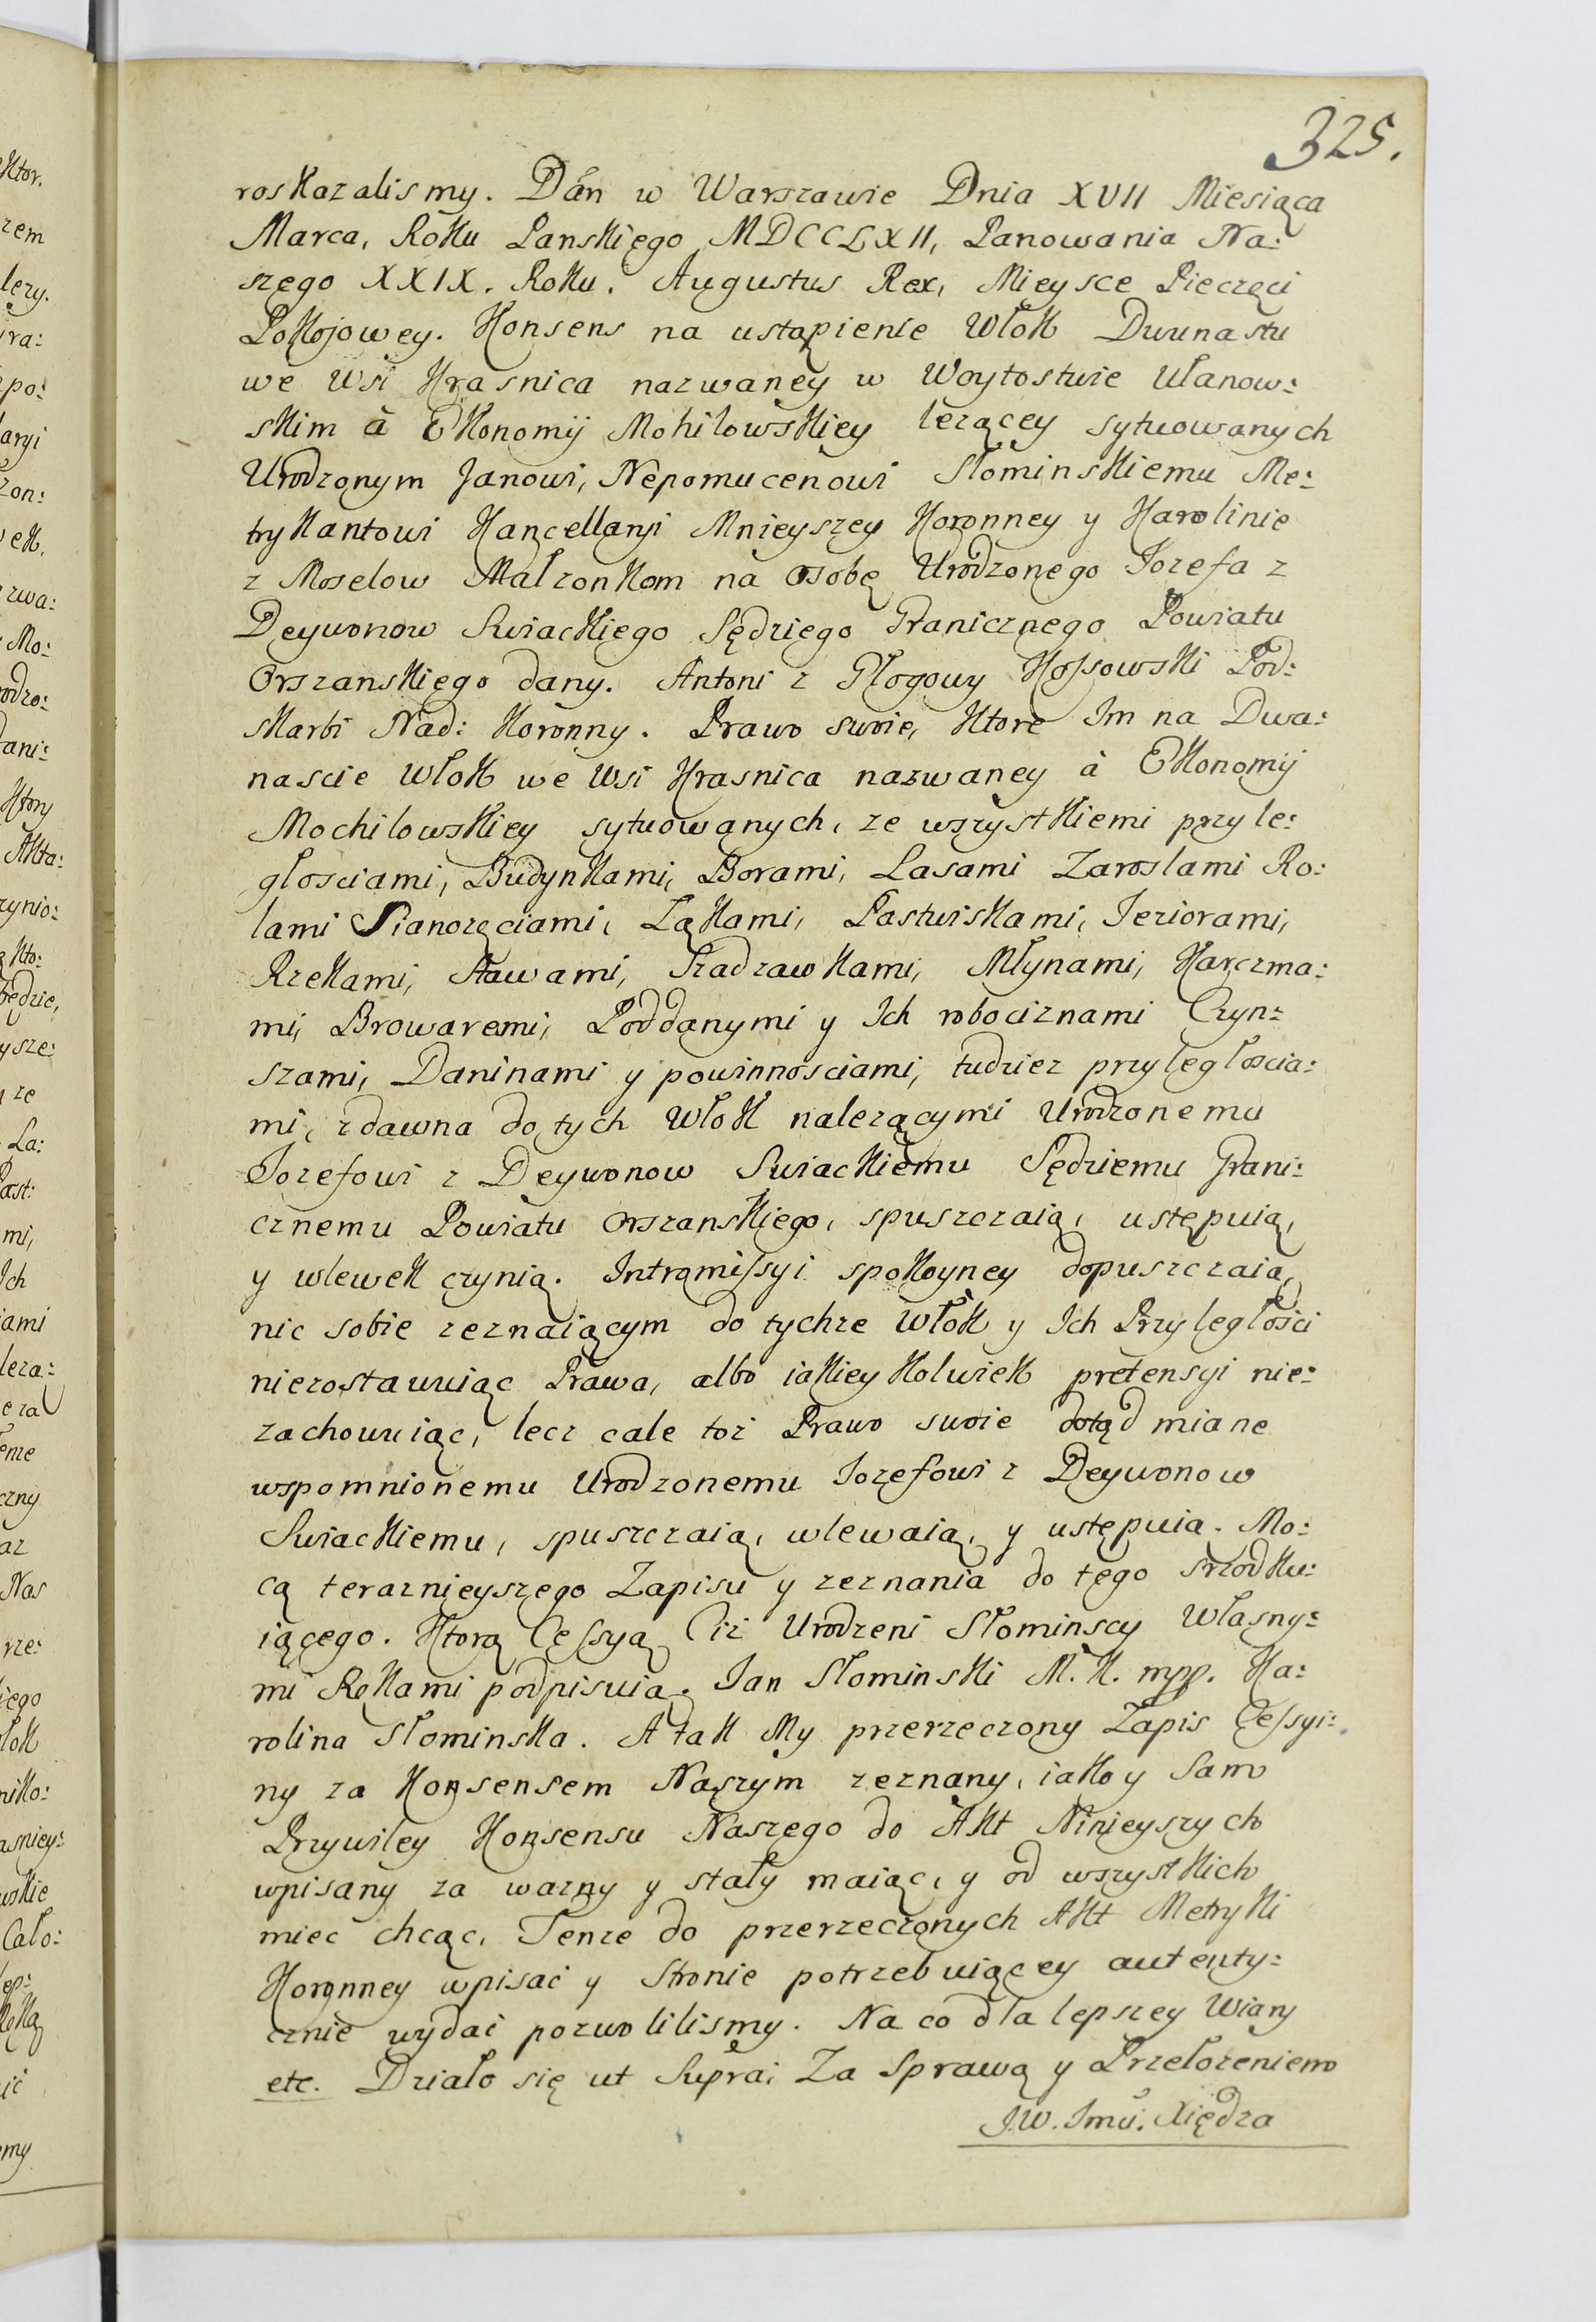 325.
roskazalismy. Dán w Warszawie Dnia XVII Miesiąca
Marca, Roku Panskiego MDCCLXII, Panowania Na:
szego XXIX. Roku. Augustus Rex, Mieysce Pieczęci
Pokojowey. Konsens na ustąpienie Włok Dwunastu
we Wsi Krasnica nazwaney w Woytostwie Ułanow:
skim à Ekonomij Mohilowskiey lezącey sytuowanych
Urodzonym Janowi, Nepomucenowi Słominskiemu Me:
trykantowi Kancellaryi Mnieyszey Koronney y Karolinie
z Moselow Małzonkom na osobę Urodzonego Jozefa z
Deywonow Swiackiego Sędziego Granicznego Powiatu
Orszanskiego dany. Antoni z Głogowy Kossowski Pod:
skarbi Nad: Koronny. Prawo swoie, ktore Im na Dwa:
nascie Włok we Wsi Krasnica nazwaney à Ekonomij
Mochilowskiey sytuowanych, ze wszystkiemi przyle:
głosciami, Budynkami, Borami, Lasami Zaroslami Ro:
lami Sianozęciami, Łąkami, Pastwiskami, Jeziorami,
Rzekami, Stawami, Sadzawkami, Młynami, Karczma:
mi, Browarami, Poddanymi y Ich robociznami Czyn:
szami, Daninami y powinnosciami, tudziez przyległoscia:
mi, zdawna do tych Włok nalezącymi Urodzonemu
Jozefowi z Deywonow Swiackiemu Sędziemu Grani:
cznemu Powiatu Orszanskiego, spuszczaią, ustępuią,
y wlewek czynią. Intromissyi spokoyney dopuszczaią,
nic sobie zeznaiącym do tychze Włók y Ich Przyległości
niezostawuiąc Prawa, albo iakiey kolwiek pretensyi nie:
zachowuiąc, lecz cale toż Prawo swoie dotąd miane
wspomnionemu Urodzonemu Jozefowi z Deywonow
Swiackiemu, spuszczaią, wlewaią, y ustępuią. Mo:
cą teraznieyszego Zapisu y zeznania do tego srzodku:
iącego. Ktorą Cessyą Ciż Urodzeni Słominscy Własny:
mi Rękami podpisuią. Jan Słominski M.K. mpp. Ka:
rolina Słominska. A tak My przerzeczony Zapis Cessyi:
ny za Konsensem Naszym zeznany, iako y samo
Przywiley Konsensu Naszego do Akt Ninieyszych
wpisany za wazny y stały maiąc, y od wszystkich
miec chcąc, Tenze do przerzeczonych Akt Metryki
Koronney wpisać y stronie potrzebuiącey autenty:
cznie wydać pozwolilismy. Na co dla lepszey Wiary
etc. Działo się ut Supra; Za Sprawą y Przełozeniem
J.W. Jmć. Xiędza